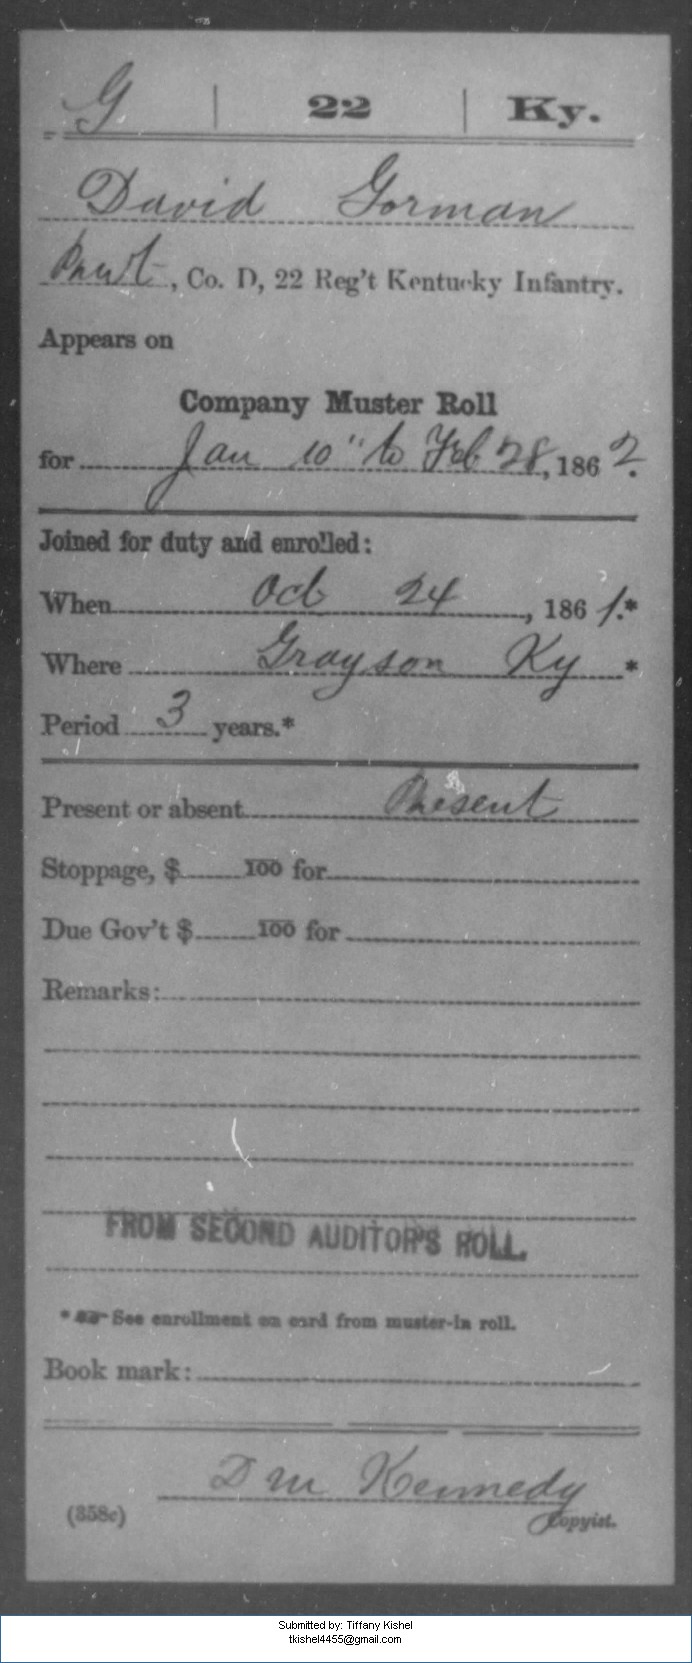 G | 22 | Ky.
David Gorman
Pvt, Co. D, 22 Reg't Kentucky Infantry.
Appears on
Company Muster Roll
for Jan 10" to Feb 28, 1862.
Joined for duty and enrolled:
When Oct 24, 1861.*
Where Grayson Ky *
Period 3 years.*
Present or absent Present
Stoppage, $ 100 for
Due Gov't $ 100 for
Remarks:
FROM SECOND AUDITOR'S ROLL.
* See enrollment on card from muster-in roll.
Book mark:
D M Kennedy
(358c) Copyist.
Submitted by: Tiffany Kishel
tkishel4455@gmail.com